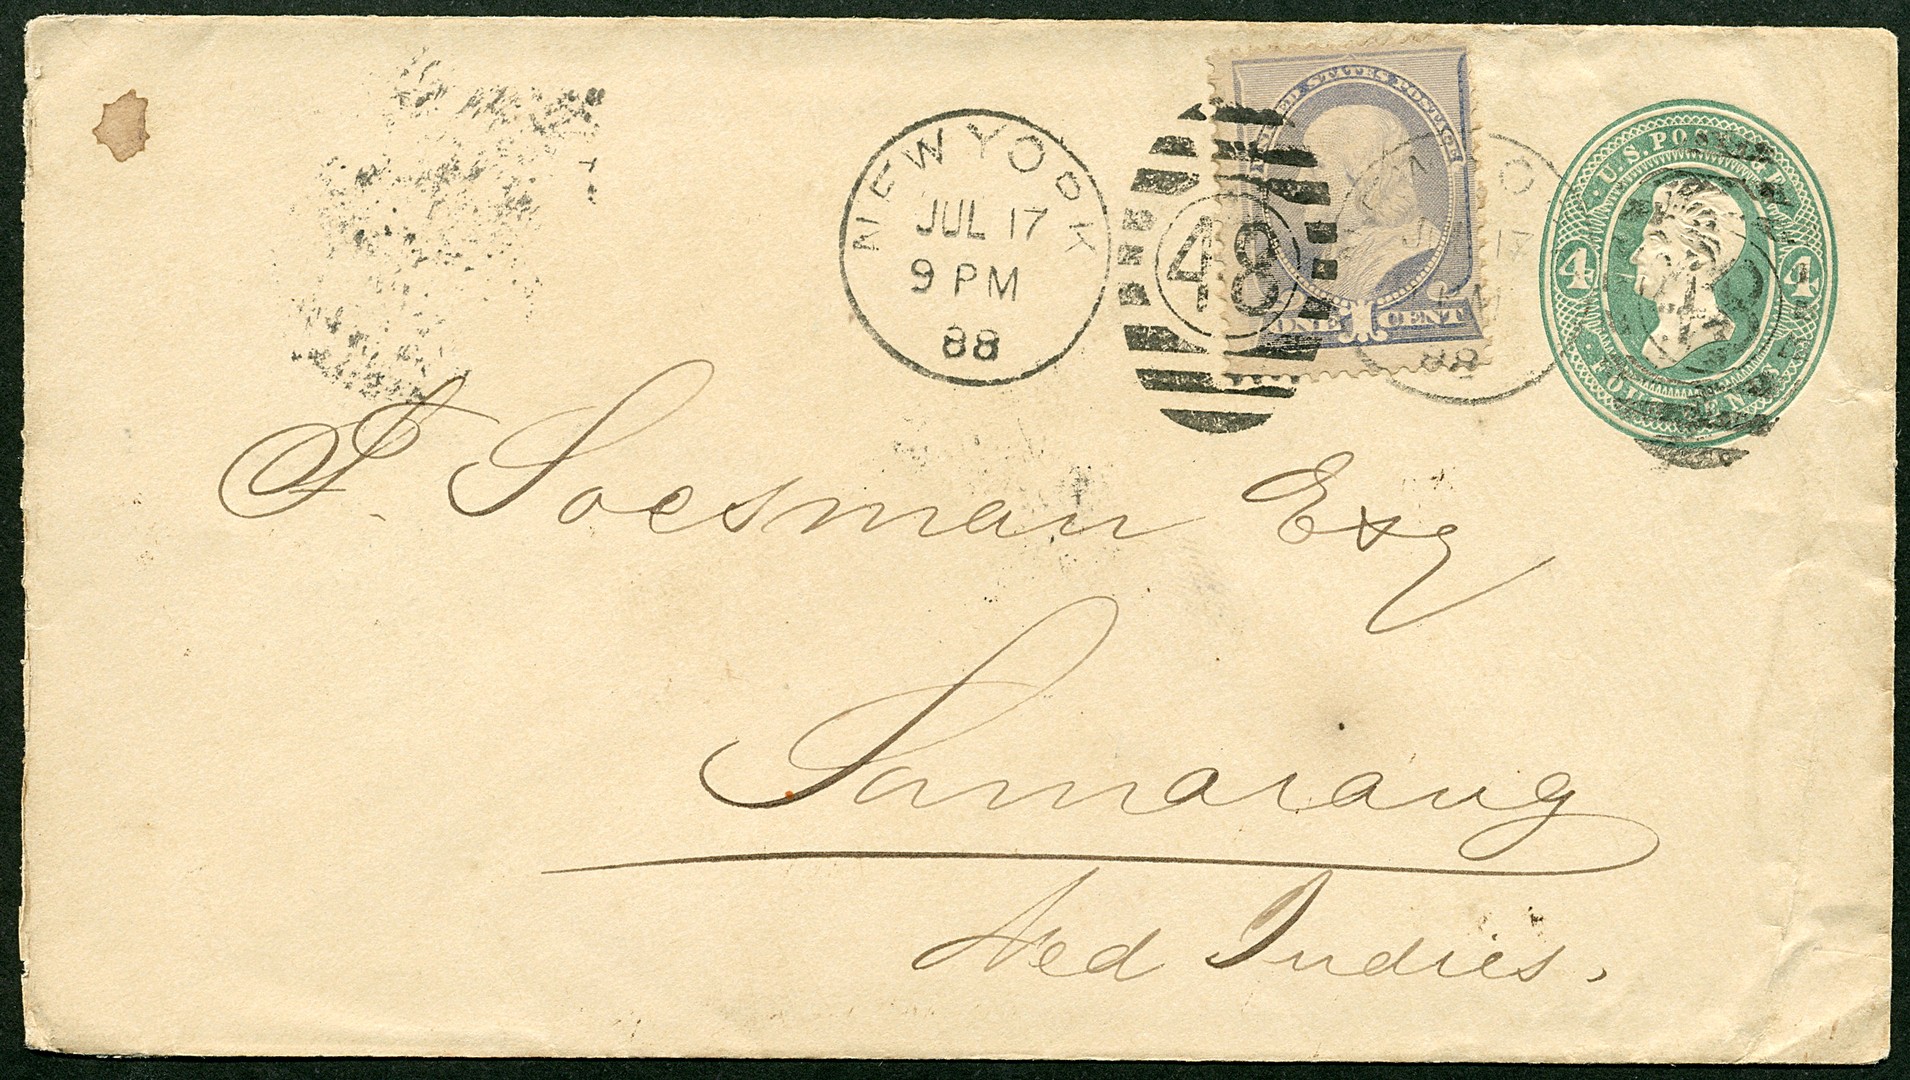 NEW YORK
JUL 17
9 PM
88
48
UNITED STATES POSTAGE
ONE 1 CENT
JUL 17
PM
88
U.S. POSTAGE
4 4
FOUR CENTS
Soesman Esq
Samarang
Ned Indies.